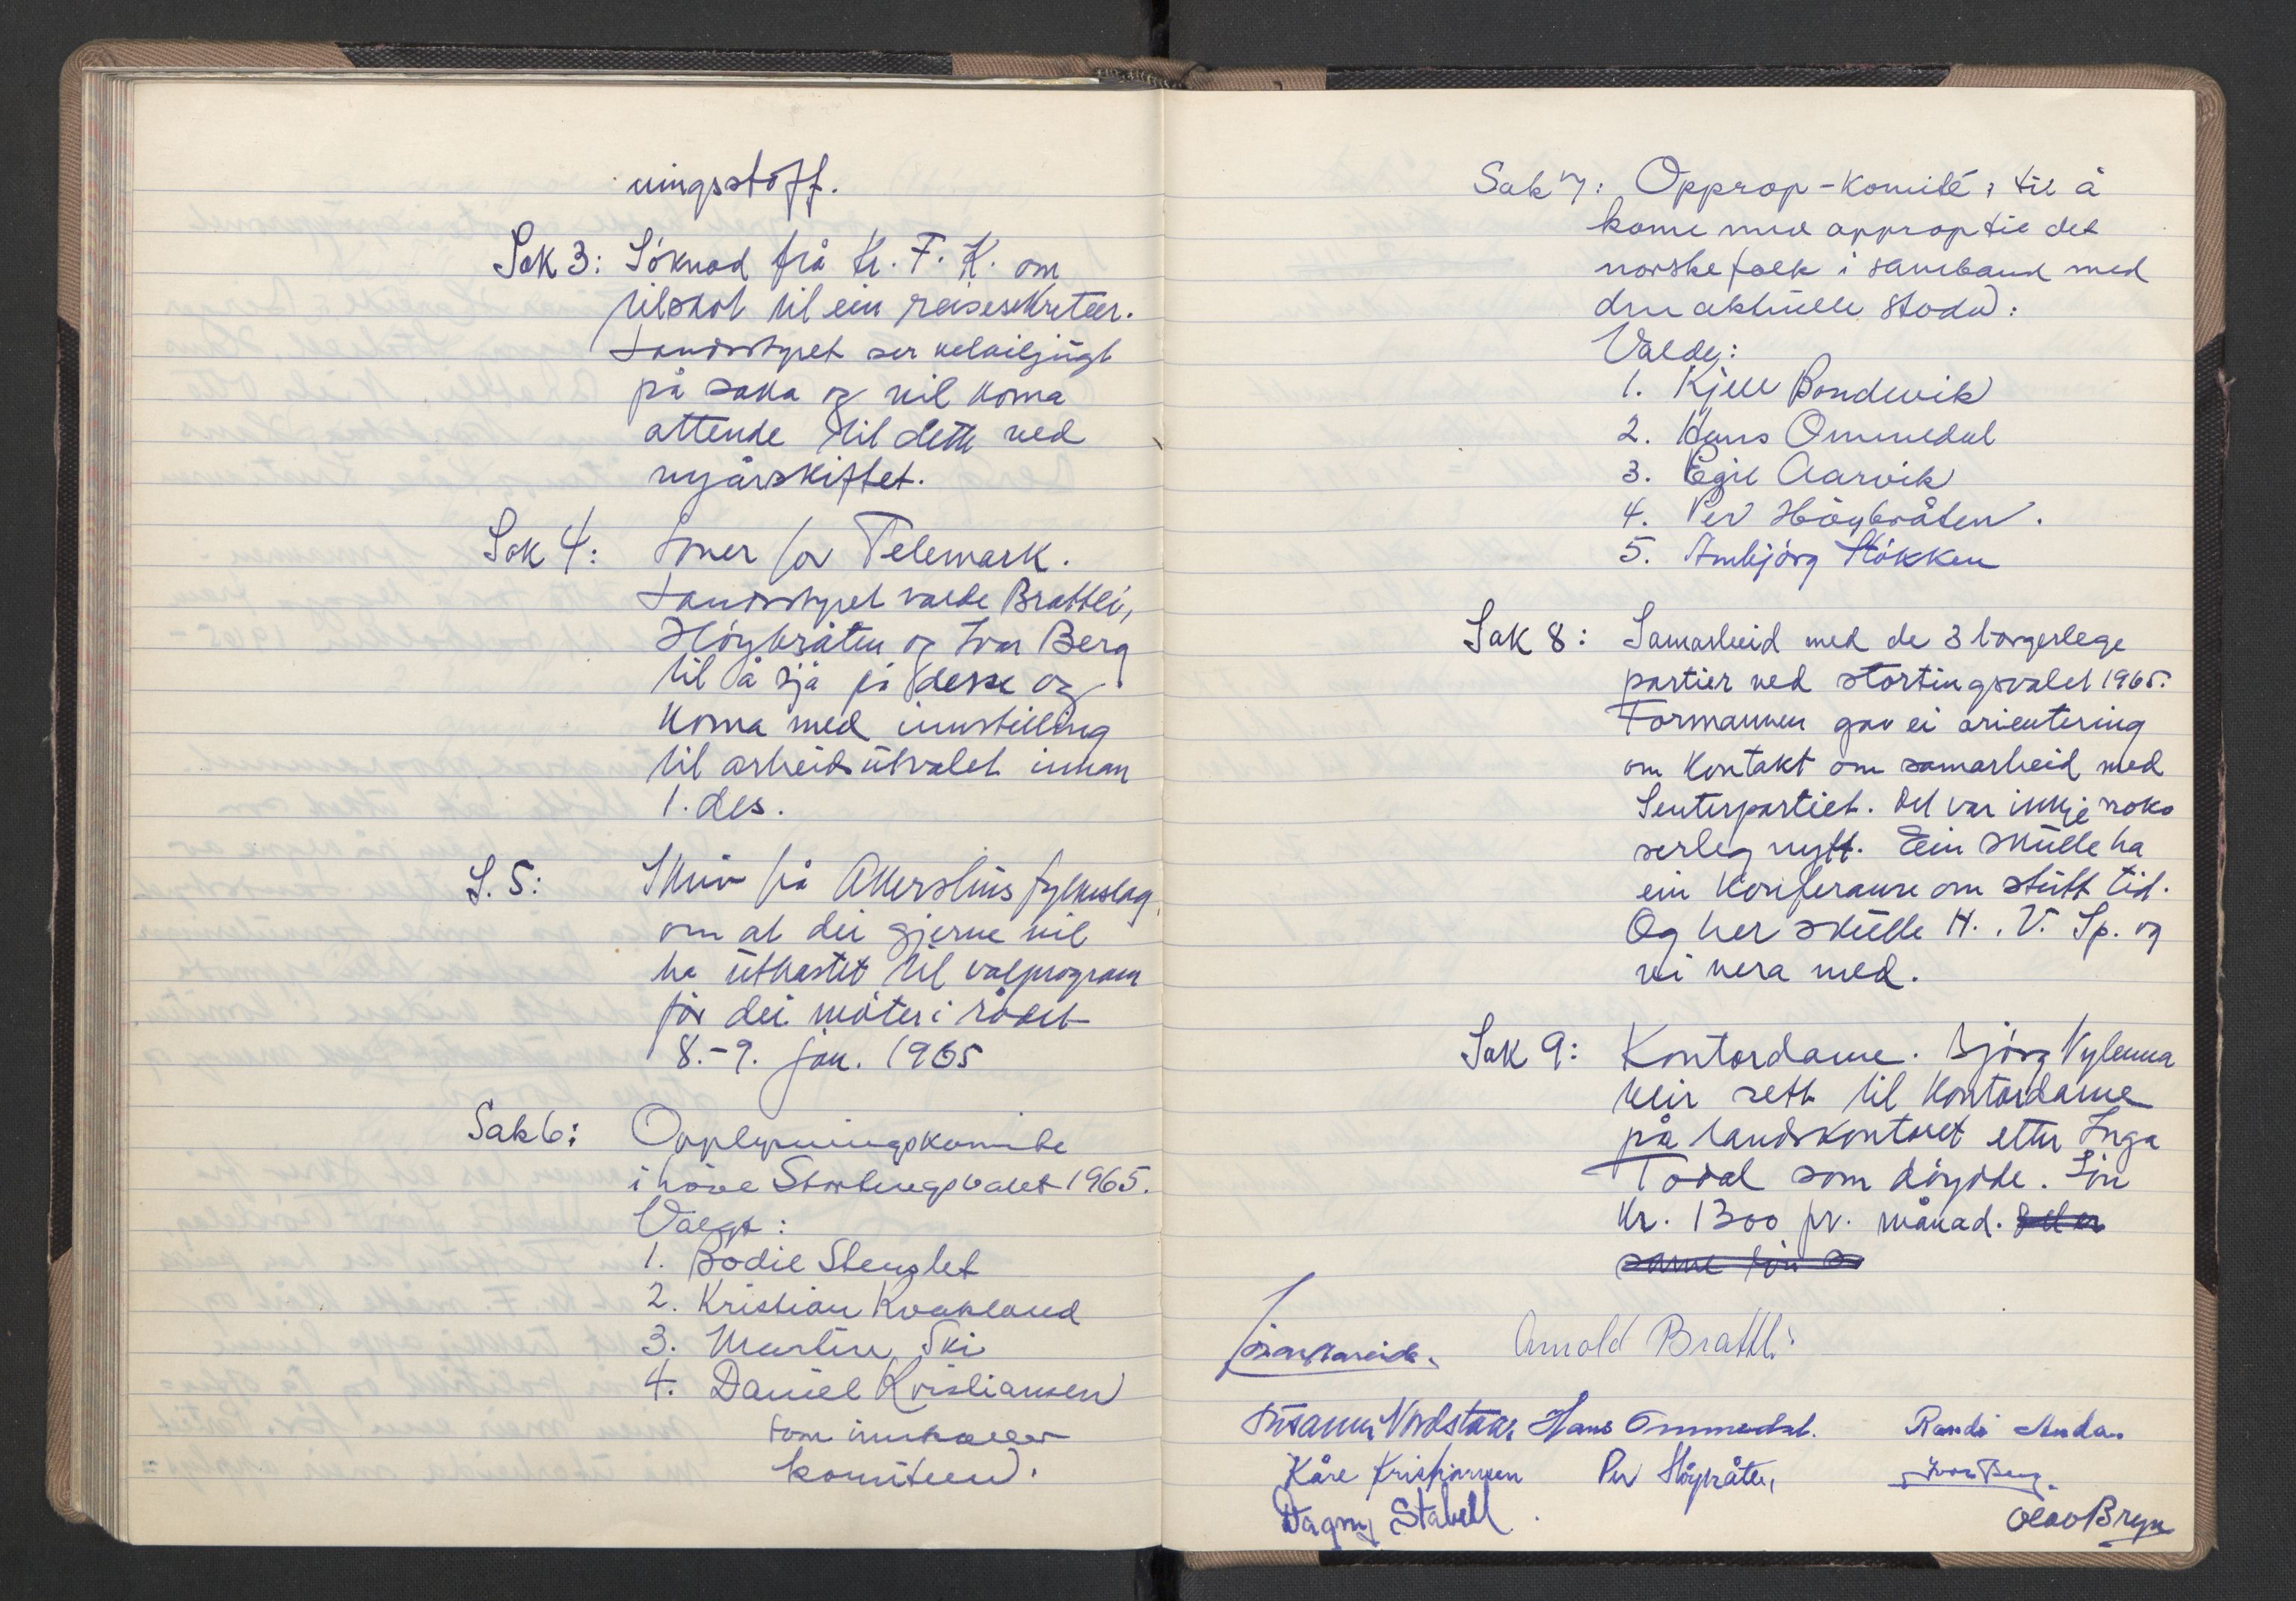 ningsstoff.
Sak 3: Söknad frå Kr. F. K. om
tilskot til ein reisesekretær.
Landsstyret ser velviljugt
på saka og vil koma
attende til dette ved
nyårskiftet.
Sak 4: Loner for Telemark.
Landsstyret valde Brattli,
Höybråten og Ivar Berg
til å sjå på desse og
koma med innstilling
til arbeidsutvalet innan
1. des.
S. 5: Skriv frå Akershus fylkeslag
om at dei gjerne vil
ha utkastet til valprogram
för dei möter i rådet
8.-9. jan. 1965
Sak 6: Opplysningskomite
i höve Stortingsvalet 1965.
Valgt:
1. Bodil Stenslet
2. Kristian Kvakland
3. Martin Ski
4. Daniel Kristiansen
som innkaller
komiteen.
Sak 7: Opprop-komité, til å
kome med opprop til det
norske folk i samband med
den aktuelle stoda:
Valde:
1. Kjell Bondevik
2. Hans Ommedal
3. Egil Aarvik
4. Per Höybråten.
5. Ambjörg Stökken
Sak 8: Samarbeid med de 3 borgerlege
partier ved stortingsvalet 1965.
Formannen gav ei orientering
om kontakt om samarbeid med
Senterpartiet. Det var ikkje noko
serleg nytt. Ein skulle ha
ein konferanse om stutt tid.
Og her skulle H., V. Sp. og
vi vera med.
Sak 9: Kontordame. Björg Vylenna
blir sett til kontordame
på landskontoret etter Inga
Todal som döydde. Lön
kr. 1300 pr. månad. Det er
same lön s
Arnold Brattli
Susanna Nordstaar Hans Ommedal. Randi Anda.
Kåre Kristiansen Per Höybråten, Ivar Berg.
Dagny Stabell. Olav Bryn